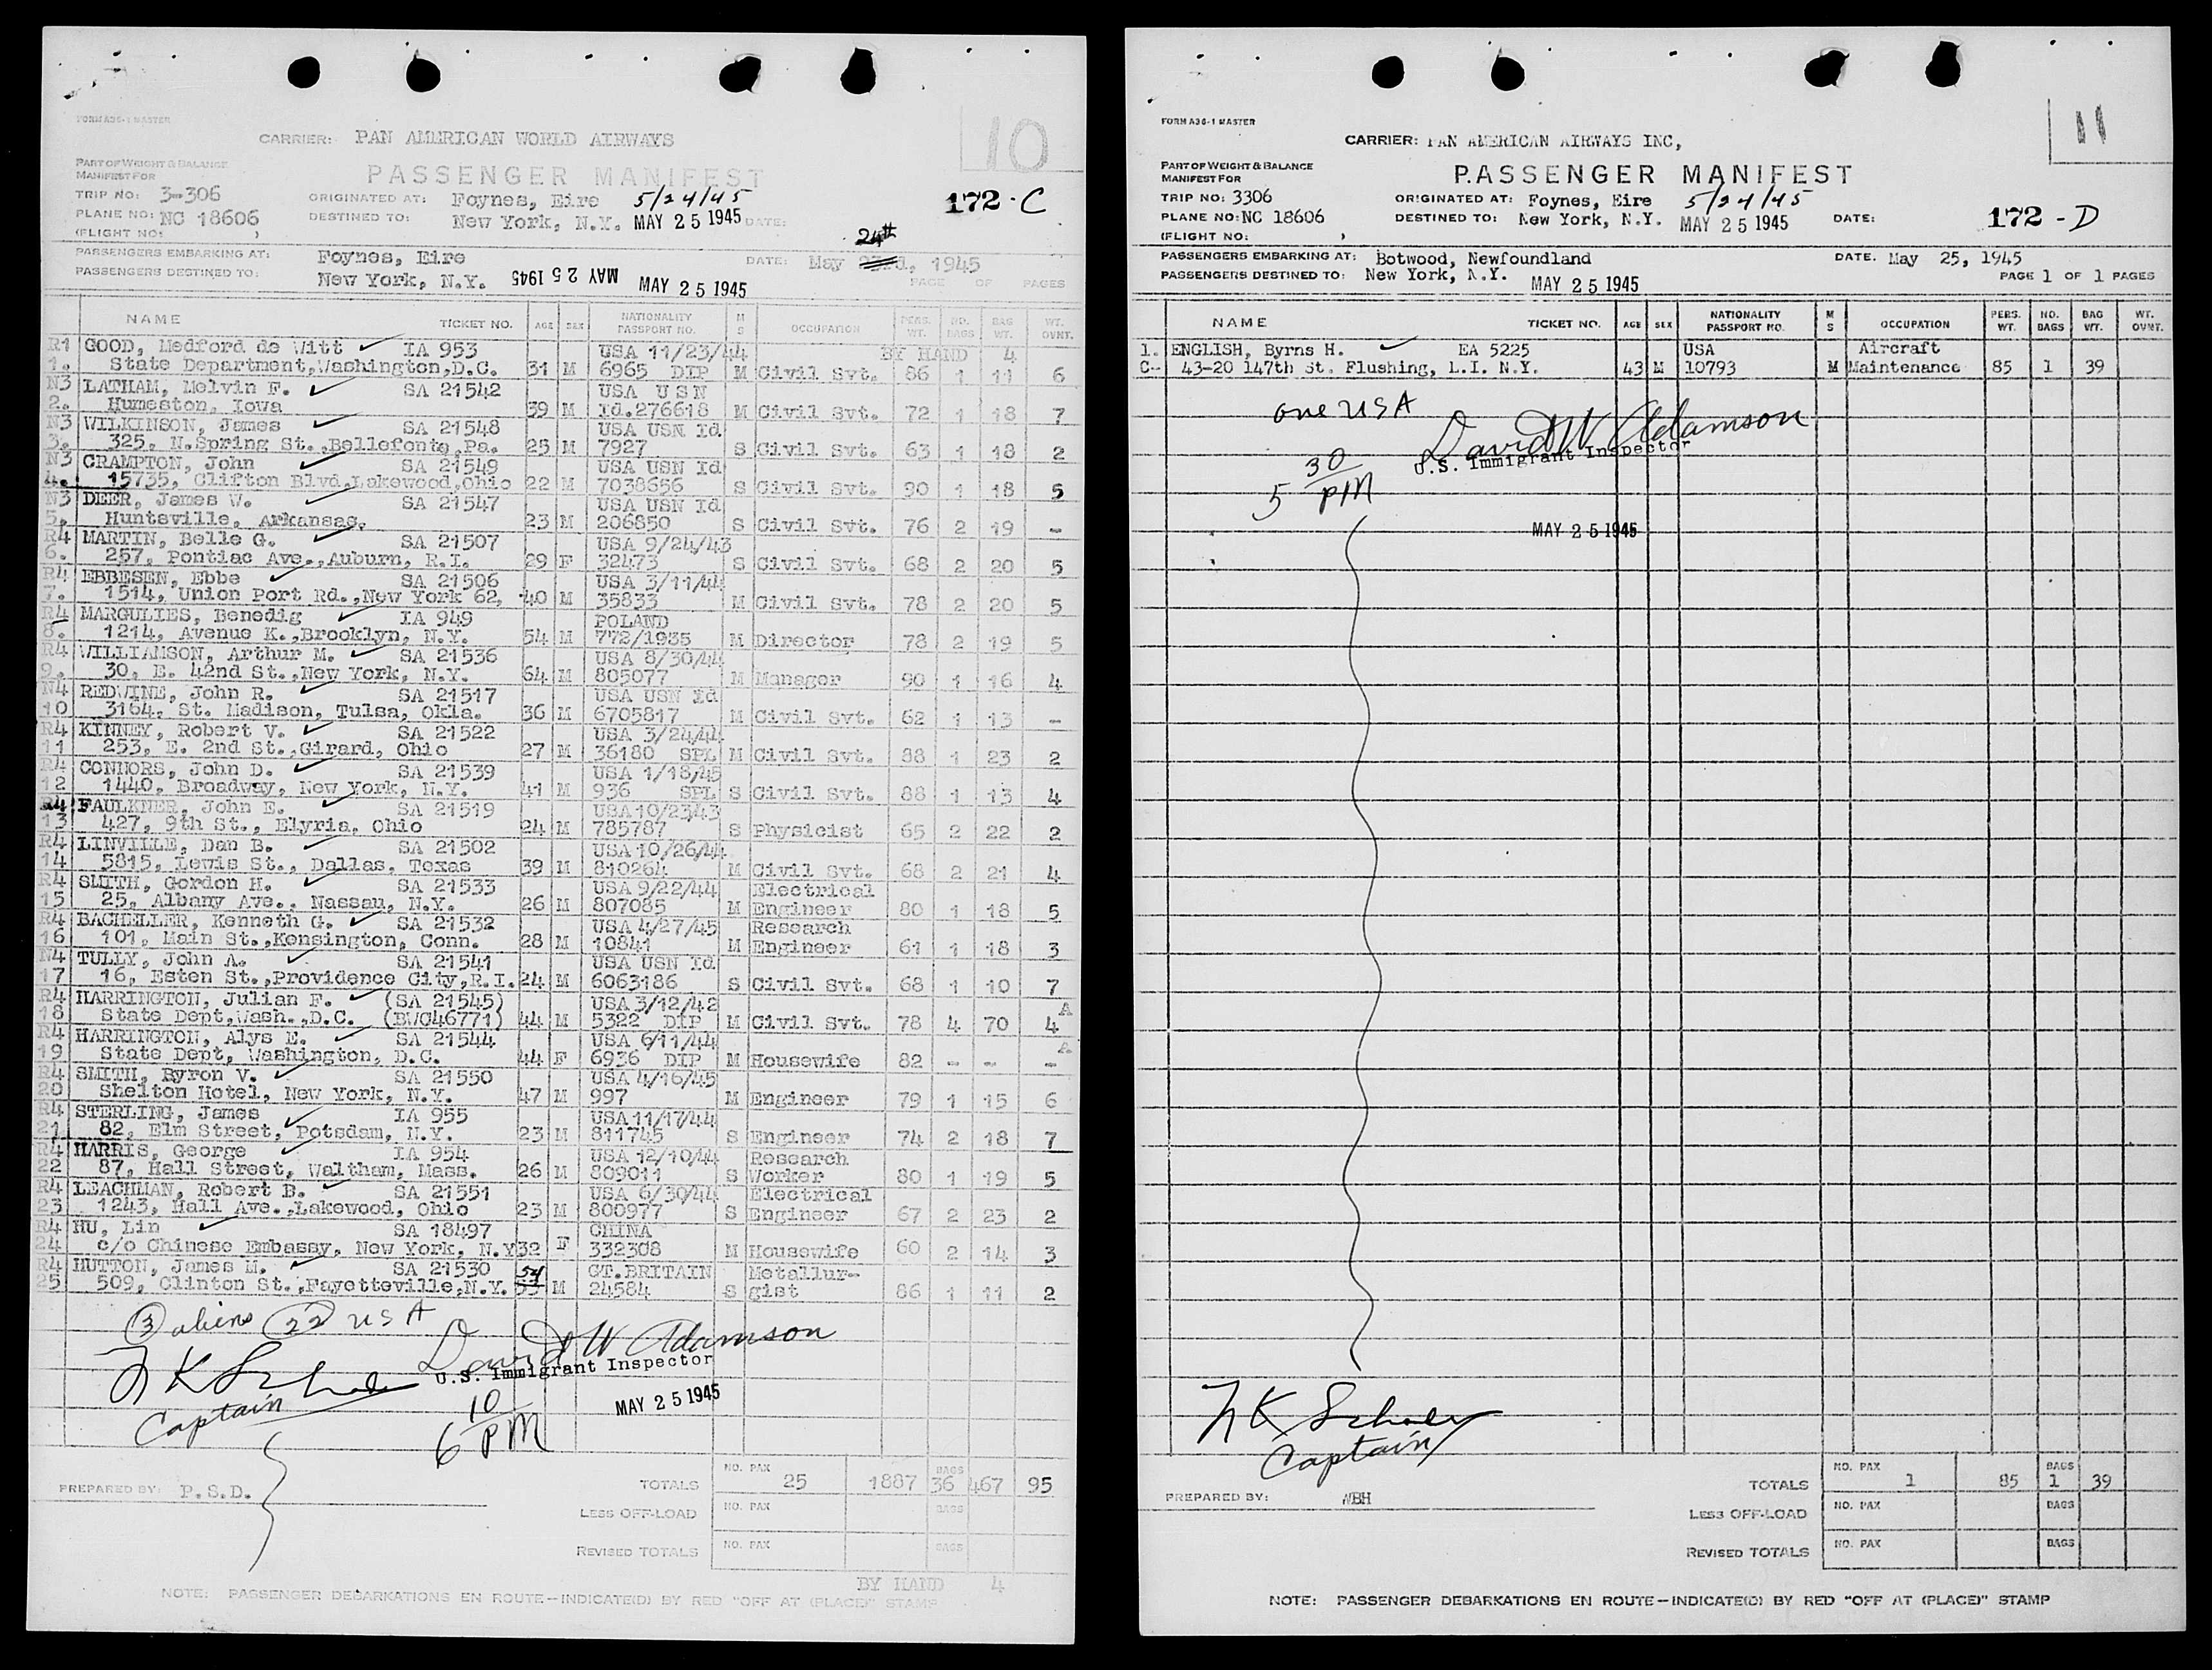 FORM A36-1 MASTER
10
CARRIER: PAN AMERICAN WORLD AIRWAYS
PART OF WEIGHT & BALANCE
MANIFEST FOR
PASSENGER MANIFEST
TRIP NO: 3-306 ORIGINATED AT: Foynes, Eire 5/24/45 172-C
PLANE NO: NC 18606 DESTINED TO: New York, N.Y. MAY 25 1945 DATE:
(FLIGHT NO: )
24th
PASSENGERS EMBARKING AT: Foynes, Eire DATE: May 23rd, 1945
PASSENGERS DESTINED TO: New York, N.Y. MAY 25 1945 MAY 25 1945 PAGE OF PAGES
NAME TICKET NO. AGE SEX NATIONALITY PASSPORT NO. M S OCCUPATION PERS. WT. NO. BAGS BAG WT. WT. OVNT.
R1 GOOD, Medford de Witt ✓ IA 953 USA 11/23/44 BY HAND 4
1. State Department,Washington,D.C. 31 M 6965 DIP M Civil Svt. 86 1 11 6
N3 LATHAM, Melvin F. ✓ SA 21542 USA U S N
2. Humeston, Iowa 39 M Id.276618 M Civil Svt. 72 1 18 7
N3 WILKINSON, James ✓ SA 21548 USA USN Id
3. 325, N.Spring St.,Bellefonte,Pa. 25 M 7927 S Civil Svt. 63 1 18 2
N3 CRAMPTON, John ✓ SA 21549 USA USN Id
4. 15735, Clifton Blvd,Lakewood,Ohio 22 M 7038656 S Civil Svt. 90 1 18 5
N3 DEER, James W. ✓ SA 21547 USA USN Id
5. Huntsville, Arkansas. 23 M 206850 S Civil Svt. 76 2 19 -
R4 MARTIN, Belle G. ✓ SA 21507 USA 9/24/43
6. 257, Pontiac Ave.,Auburn, R.I. 29 F 32473 S Civil Svt. 68 2 20 5
R4 EBBESEN, Ebbe ✓ SA 21506 USA 3/11/44
7. 1514, Union Port Rd.,New York 62, 40 M 35833 M Civil Svt. 78 2 20 5
R4 MARGULIES, Benedig ✓ IA 949 POLAND
8. 1214, Avenue K.,Brooklyn, N.Y. 54 M 772/1935 M Director 78 2 19 5
R4 WILLIAMSON, Arthur M. ✓ SA 21536 USA 8/30/44
9. 30, E. 42nd St.,New York, N.Y. 64 M 805077 M Manager 90 1 16 4
N4 REDWINE, John R. ✓ SA 21517 USA USN Id
10 3164, St. Madison, Tulsa, Okla. 36 M 6705817 M Civil Svt. 62 1 13 -
R4 KINNEY, Robert V. ✓ SA 21522 USA 3/24/44
11 253, E. 2nd St.,Girard, Ohio 27 M 36180 SPL M Civil Svt. 88 1 23 2
R4 CONNORS, John D. ✓ SA 21539 USA 1/18/45
12 1440, Broadway, New York, N.Y. 41 M 936 SPL S Civil Svt. 88 1 13 4
R4 FAULKNER, John E. ✓ SA 21519 USA 10/23/43
13 427, 9th St., Elyria, Ohio 24 M 785787 S Physicist 65 2 22 2
R4 LINVILLE, Dan B. ✓ SA 21502 USA 10/26/44
14 5815, Lewis St., Dallas, Texas 39 M 810264 M Civil Svt. 68 2 21 4
R4 SMITH, Gordon H. ✓ SA 21533 USA 9/22/44 Electrical
15 25, Albany Ave., Nassau, N.Y. 26 M 807085 M Engineer 80 1 18 5
R4 BACHELLER, Kenneth G. ✓ SA 21532 USA 4/27/45 Research
16 101, Main St.,Kensington, Conn. 28 M 10841 M Engineer 61 1 18 3
N4 TULLY, John A. ✓ SA 21541 USA USN Id
17 16, Esten St.,Providence City,R.I. 24 M 6063186 S Civil Svt. 68 1 10 7
R4 HARRINGTON, Julian F. ✓ (SA 21545) USA 3/12/42 A
18 State Dept,Wash.,D.C. (BWC46771) 44 M 5322 DIP M Civil Svt. 78 4 70 4
R4 HARRINGTON, Alys E. ✓ SA 21544 USA 6/11/44 A
19 State Dept, Washington, D.C. 44 F 6936 DIP M Housewife 82 - - -
R4 SMITH, Byron V. ✓ SA 21550 USA 4/16/45
20 Shelton Hotel, New York, N.Y. 47 M 997 M Engineer 79 1 15 6
R4 STERLING, James ✓ IA 955 USA 11/17/44
21 82, Elm Street, Potsdam, N.Y. 23 M 811745 S Engineer 74 2 18 7
R4 HARRIS, George ✓ IA 954 USA 12/10/44 Research
22 87, Hall Street, Waltham, Mass. 26 M 809011 S Worker 80 1 19 5
R4 LEACHMAN, Robert B. ✓ SA 21551 USA 6/30/44 Electrical
23 1243, Hall Ave.,Lakewood, Ohio 23 M 800977 S Engineer 67 2 23 2
R4 HU, Lin ✓ SA 18497 CHINA
24 c/o Chinese Embassy, New York, N.Y 32 F 332308 M Housewife 60 2 14 3
R4 HUTTON, James M. ✓ SA 21530 54 GT.BRITAIN Metallur-
25 509, Clinton St.,Fayetteville,N.Y. 53 M 24584 S gist 86 1 11 2
3 aliens 22 USA
David W Adamson
U.S. Immigrant Inspector
Captain
MAY 25 1945
6 10 PM
TOTALS NO. PAX 25 1887 BAGS 36 467 95
PREPARED BY: P.S.D.
LESS OFF-LOAD NO. PAX BAGS
REVISED TOTALS NO. PAX BAGS
BY HAND 4
NOTE: PASSENGER DEBARKATIONS EN ROUTE—INDICATE(D) BY RED "OFF AT (PLACE)" STAMP
FORM A36-1 MASTER
11
CARRIER: PAN AMERICAN AIRWAYS INC,
PART OF WEIGHT & BALANCE
MANIFEST FOR
PASSENGER MANIFEST
TRIP NO: 3306 ORIGINATED AT: Foynes, Eire 5/24/45
PLANE NO: NC 18606 DESTINED TO: New York, N.Y. MAY 25 1945 DATE: 172-D
(FLIGHT NO: )
PASSENGERS EMBARKING AT: Botwood, Newfoundland DATE. May 25, 1945
PASSENGERS DESTINED TO: New York, N.Y. MAY 25 1945 PAGE 1 OF 1 PAGES
NAME TICKET NO. AGE SEX NATIONALITY PASSPORT NO. M S OCCUPATION PERS. WT. NO. BAGS BAG WT. WT. OVNT.
1. ENGLISH, Byrns H. ✓ EA 5225 USA Aircraft
C- 43-20 147th St. Flushing, L.I. N.Y. 43 M 10793 M Maintenance 85 1 39
one USA
David W Adamson
U.S. Immigrant Inspector
5 30 PM
MAY 25 1945
Captain
TOTALS NO. PAX 1 85 BAGS 1 39
PREPARED BY: WBH
LESS OFF-LOAD NO. PAX BAGS
REVISED TOTALS NO. PAX BAGS
NOTE: PASSENGER DEBARKATIONS EN ROUTE—INDICATE(D) BY RED "OFF AT (PLACE)" STAMP